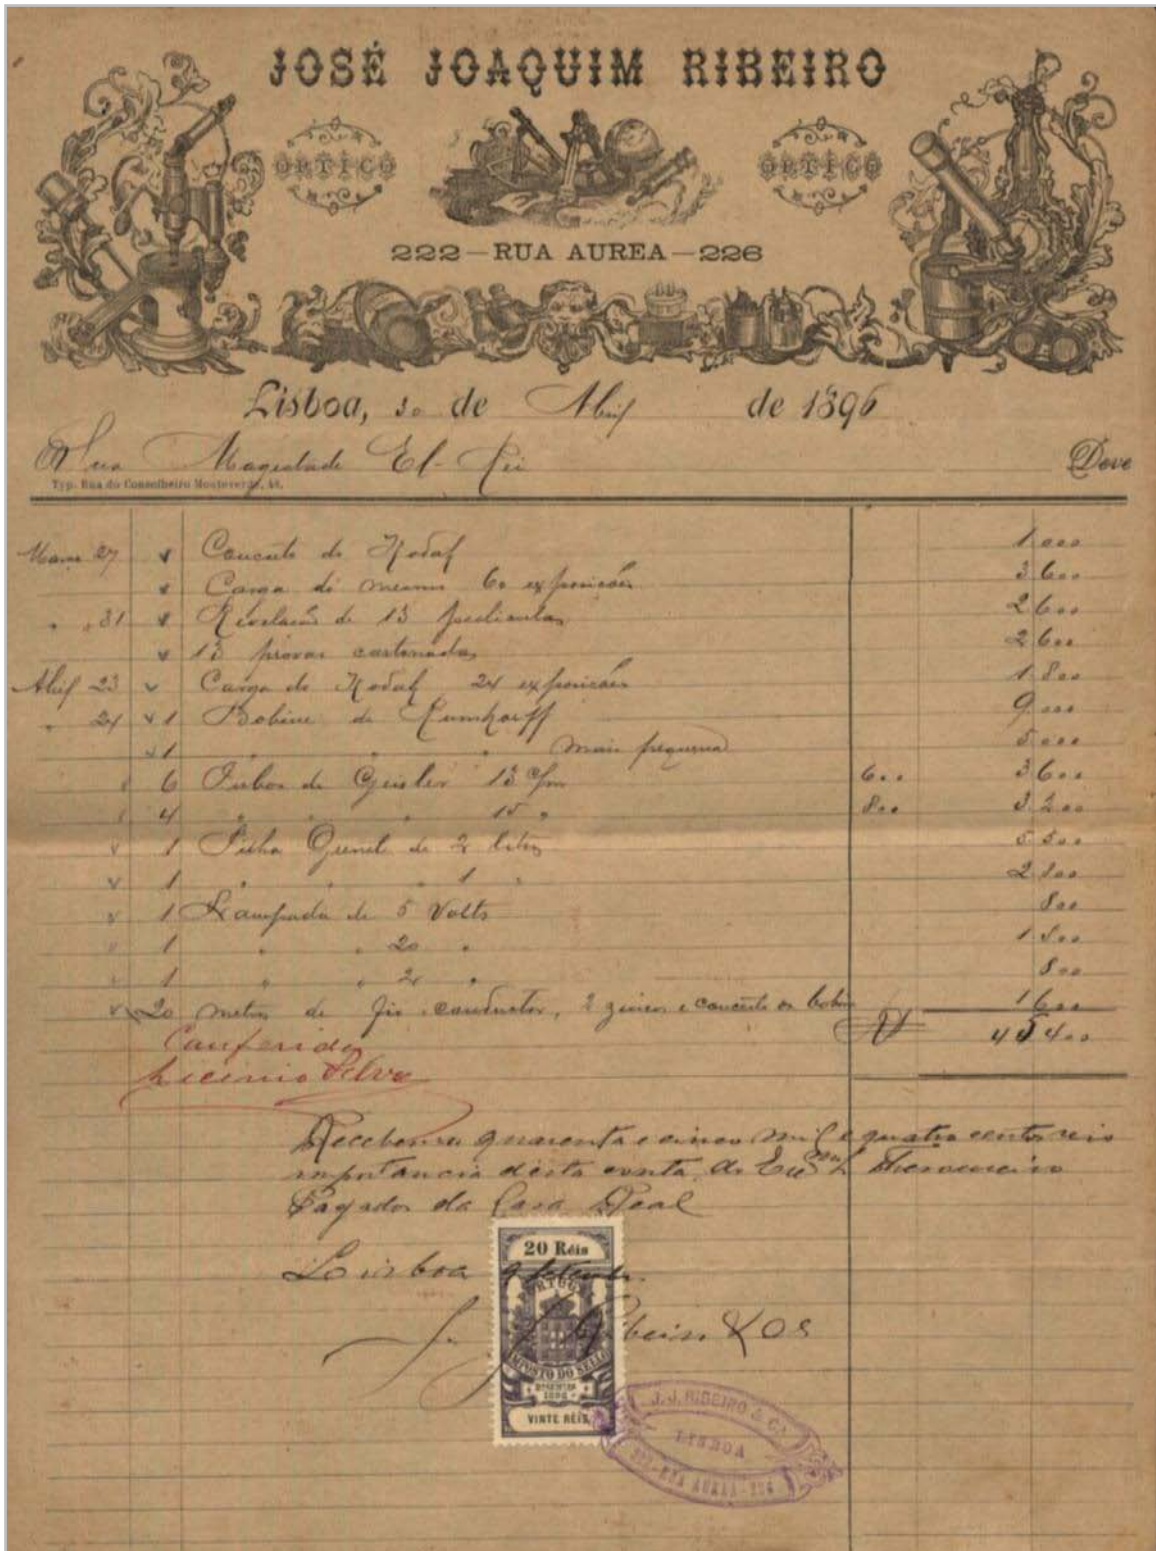 JOSÉ JOAQUIM RIBEIRO
OPTICO OPTICO
222—RUA AUREA—226
Lisboa, 30 de Abril de 1896
A Sua Magestade El-Rei Deve
Typ. Rua do Conselheiro Monteverde, 48.
27 v Concerto do Kodak 1000
v Carga do mesmo 60 exposicões 3600
" " 31 v Revelacão de 13 2600
v 13 provas cartonadas 2600
Abril 23 v Carga do Kodak 24 exposicões 1800
" 24 v 1 Bobine de Rumkorff 9000
v 1 " " " mais pequena 5000
6 Tubos de Geisler 13 c/m 600 3600
4 " " " 15 " 800 3200
v 1 Pilha Grenet de 2 litros 5500
v 1 " " " 1 "
v 1 Lampada de 5 Volts 800
1 " " 20 "
1 " " 2 " 800
v 20 metros de fio conductor, 2 zincos e concerto 1600
45400
Conferido
Licinio Silva
Recebemos quarenta e cinco mil e quatro centos reis
importancia desta conta, do Thesoureiro
Pagador da Casa Real
20 Réis
Lisboa
J. J. Ribeiro
IMPOSTO DO SELLO
VINTE RÉIS
J. J. RIBEIRO & Cª
LISBOA
222-RUA AUREA-226